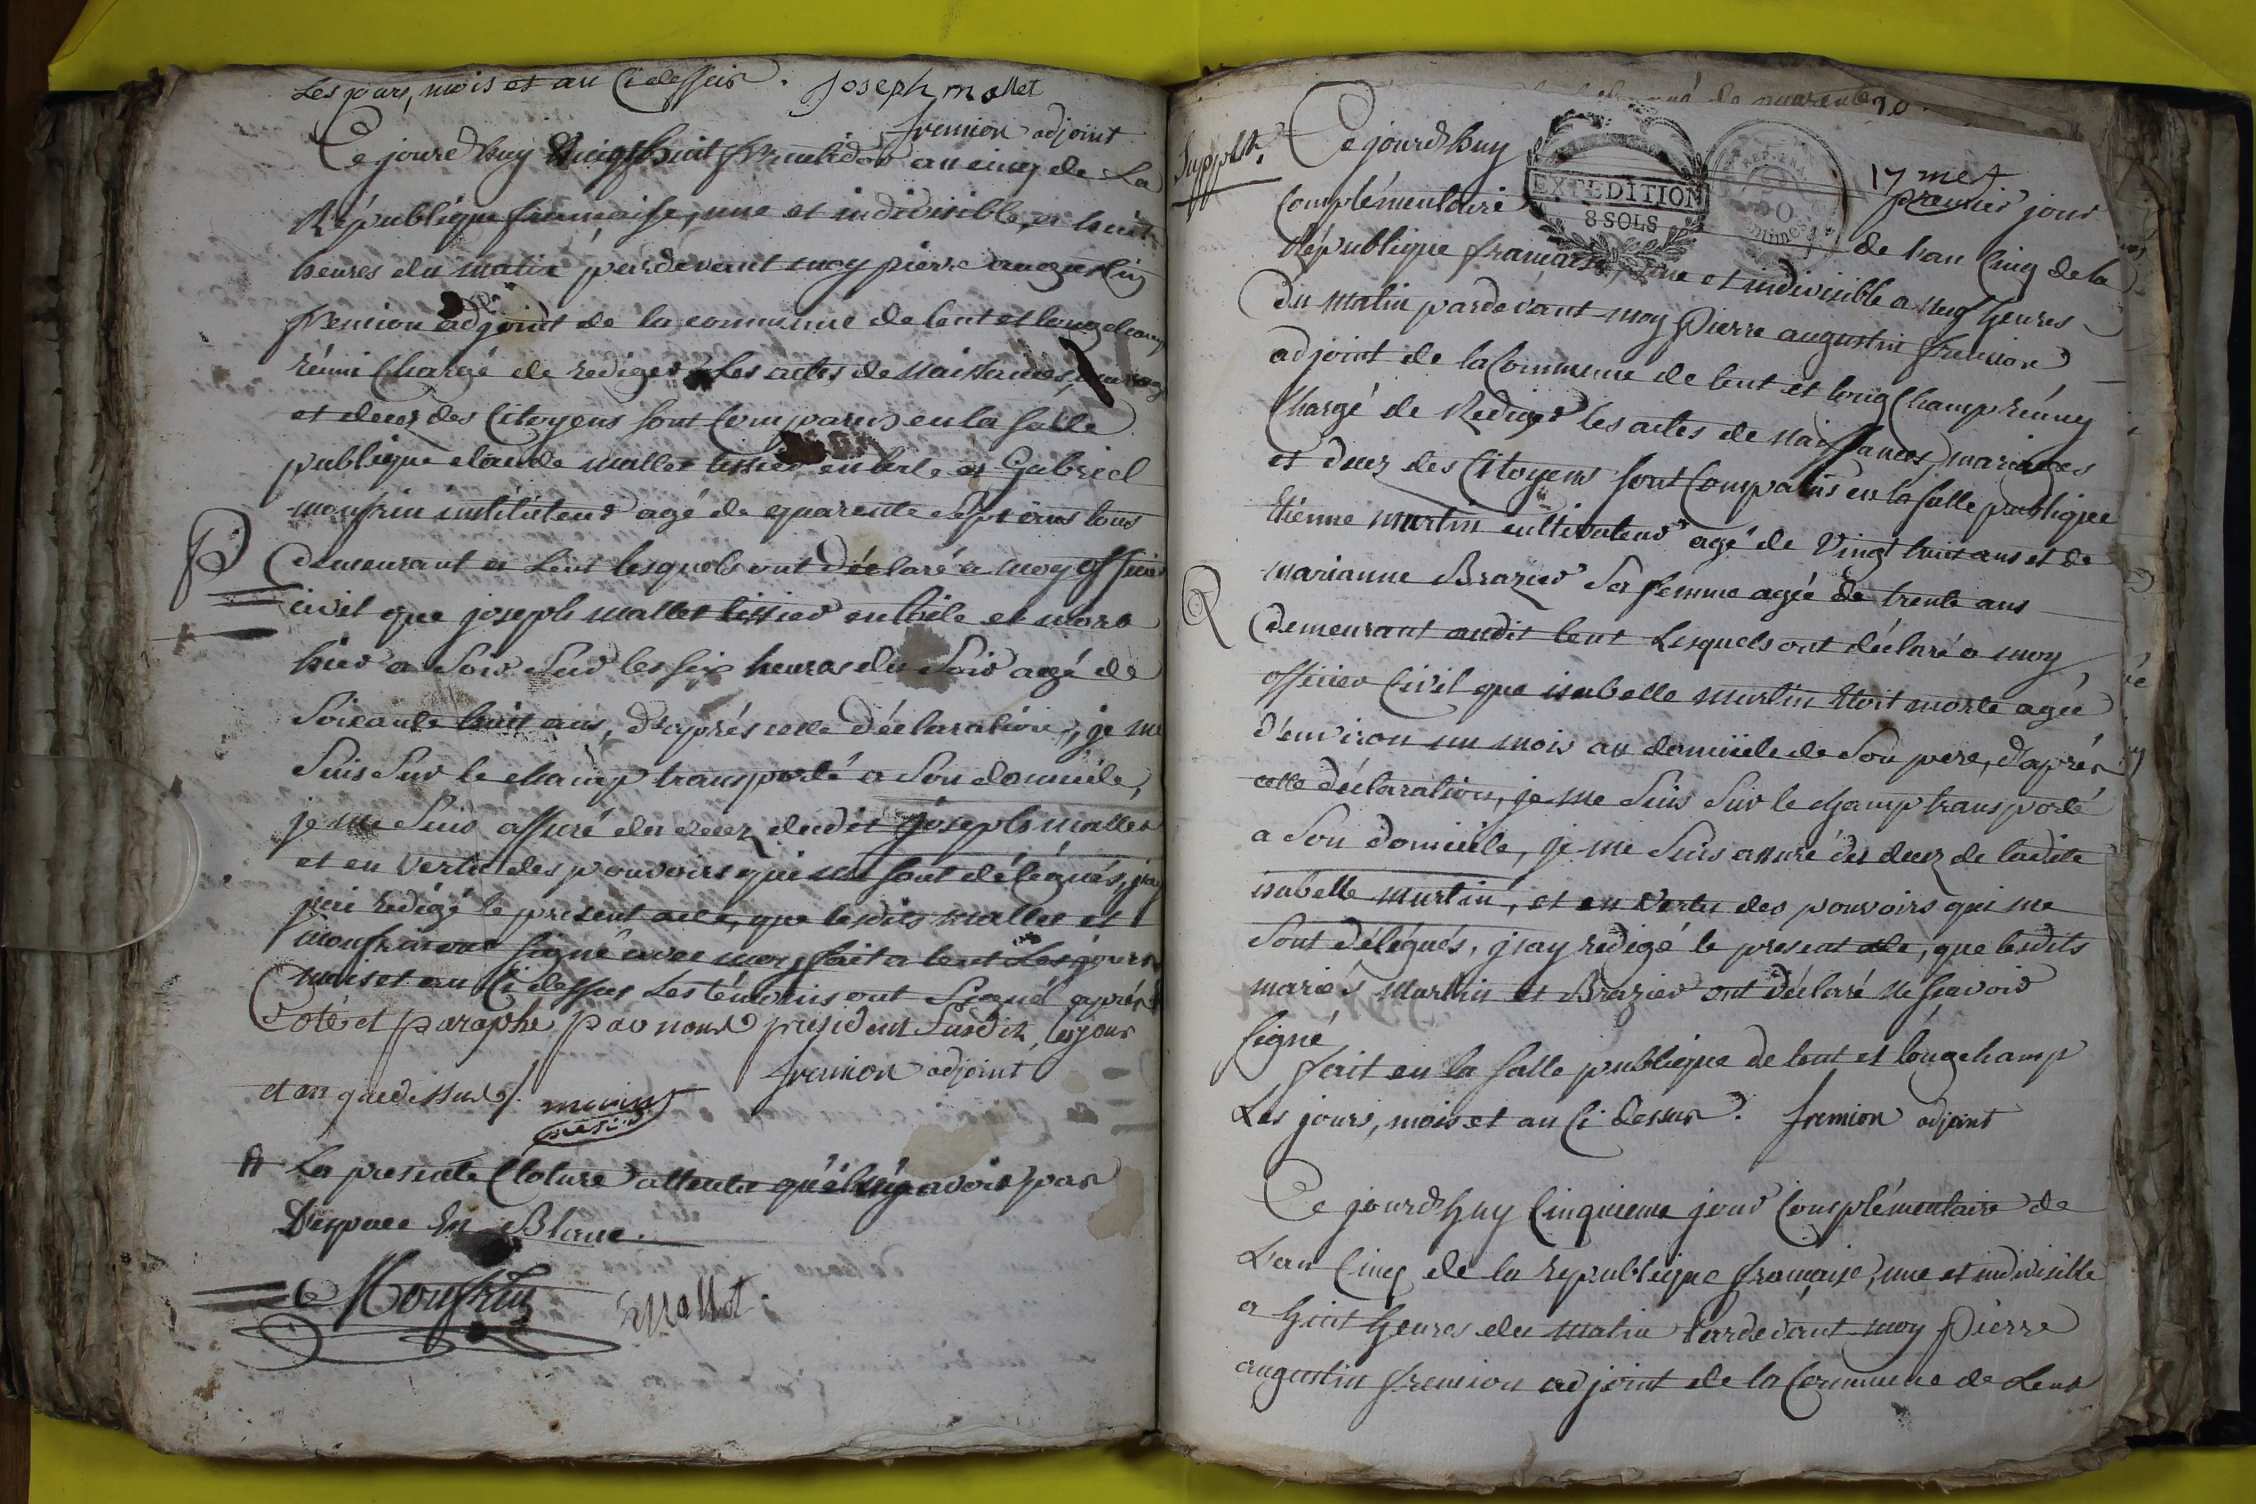 Les jours, mois et an Ci dessus. Joseph mallet
fremion adjoint
Ce jourd'huy Vingt huit fructidor an cinq de La
République française, une et indivisible, a huit
heures du matin pardevant moy pierre augustin
fremion adjoint de la commune de lent et longchamp
réuni Chargé de rediger Les actes de Naissances,
et decez des Citoyens sont Comparus en la salle
publique claude mallet tissier en toile et Gabriel
monfrin instituteur agé de quarente sept ans tous
demeurant a Lent lesquels ont déclaré a moy officier
civil que joseph mallet tissier en toile et mort
hier a Soir Sur les six heures du Soir agé de
Soixante huit ans, d'après cette déclaration, je me
Suis Sur le champ transporté a Son domicile,
je me Suis assuré du decez dudit joseph mallet
et en vertu des pouvoirs qui me sont délégués, j'ay
redigé le present acte, que lesdits mallet et
monfrin ont signé avec moy fait a lent Les jours
mois et an Ci dessus Les témoins ont Signé après
Coté et paraphé par nous president Susdit, les jour
fremion adjoint
et an que dessus
A La presente Cloture attendu qu'il n'y avoit pas
D'espace En Blanc.
Monfrin Mallet.
20
Supplt.
17 me
Ce jourd'huy premier jour
EXPEDITION
8 SOLS
REP. FRA.
50
Complémentaire de l'an Cinq de la
République française, une et indivisible a neuf heures
du Matin pardevant moy Pierre augustin fremion
adjoint de la Commune de lent et long Champ réuny
Chargé de Rediger les actes de naissances, mariages
et decez des Citoyens sont Comparus en la salle publique
Etienne martin cultivateur agé de Vingt huit ans et de
marianne Brazier Sa femme agée de trente ans
demeurant audit lent Lesquels ont déclaré a moy
officier Civil que isabelle martin Etoit morte agée
d'environ un mois au domicile de Son pere, d'après
cette déclaration, je me Suis Sur le champ transporté
a Son domicile, je me Suis assuré du decez de ladite
isabelle martin, et en Vertu des pouvoirs qui me
Sont délégués, j'ay redigé le present acte, que lesdits
mariés martin et Brazier ont déclaré ne sçavoir
signé
fait en la salle publique de lent et longchamp
Les jours, mois et an Ci dessus. fremion adjoint
Ce jourd'huy Cinquieme jour Complémentaire de
L'an Cinq de la republique française, une et indivisible
a huit heures du Matin Pardevant moy Pierre
augustin fremion adjoint de la Commune de Lent